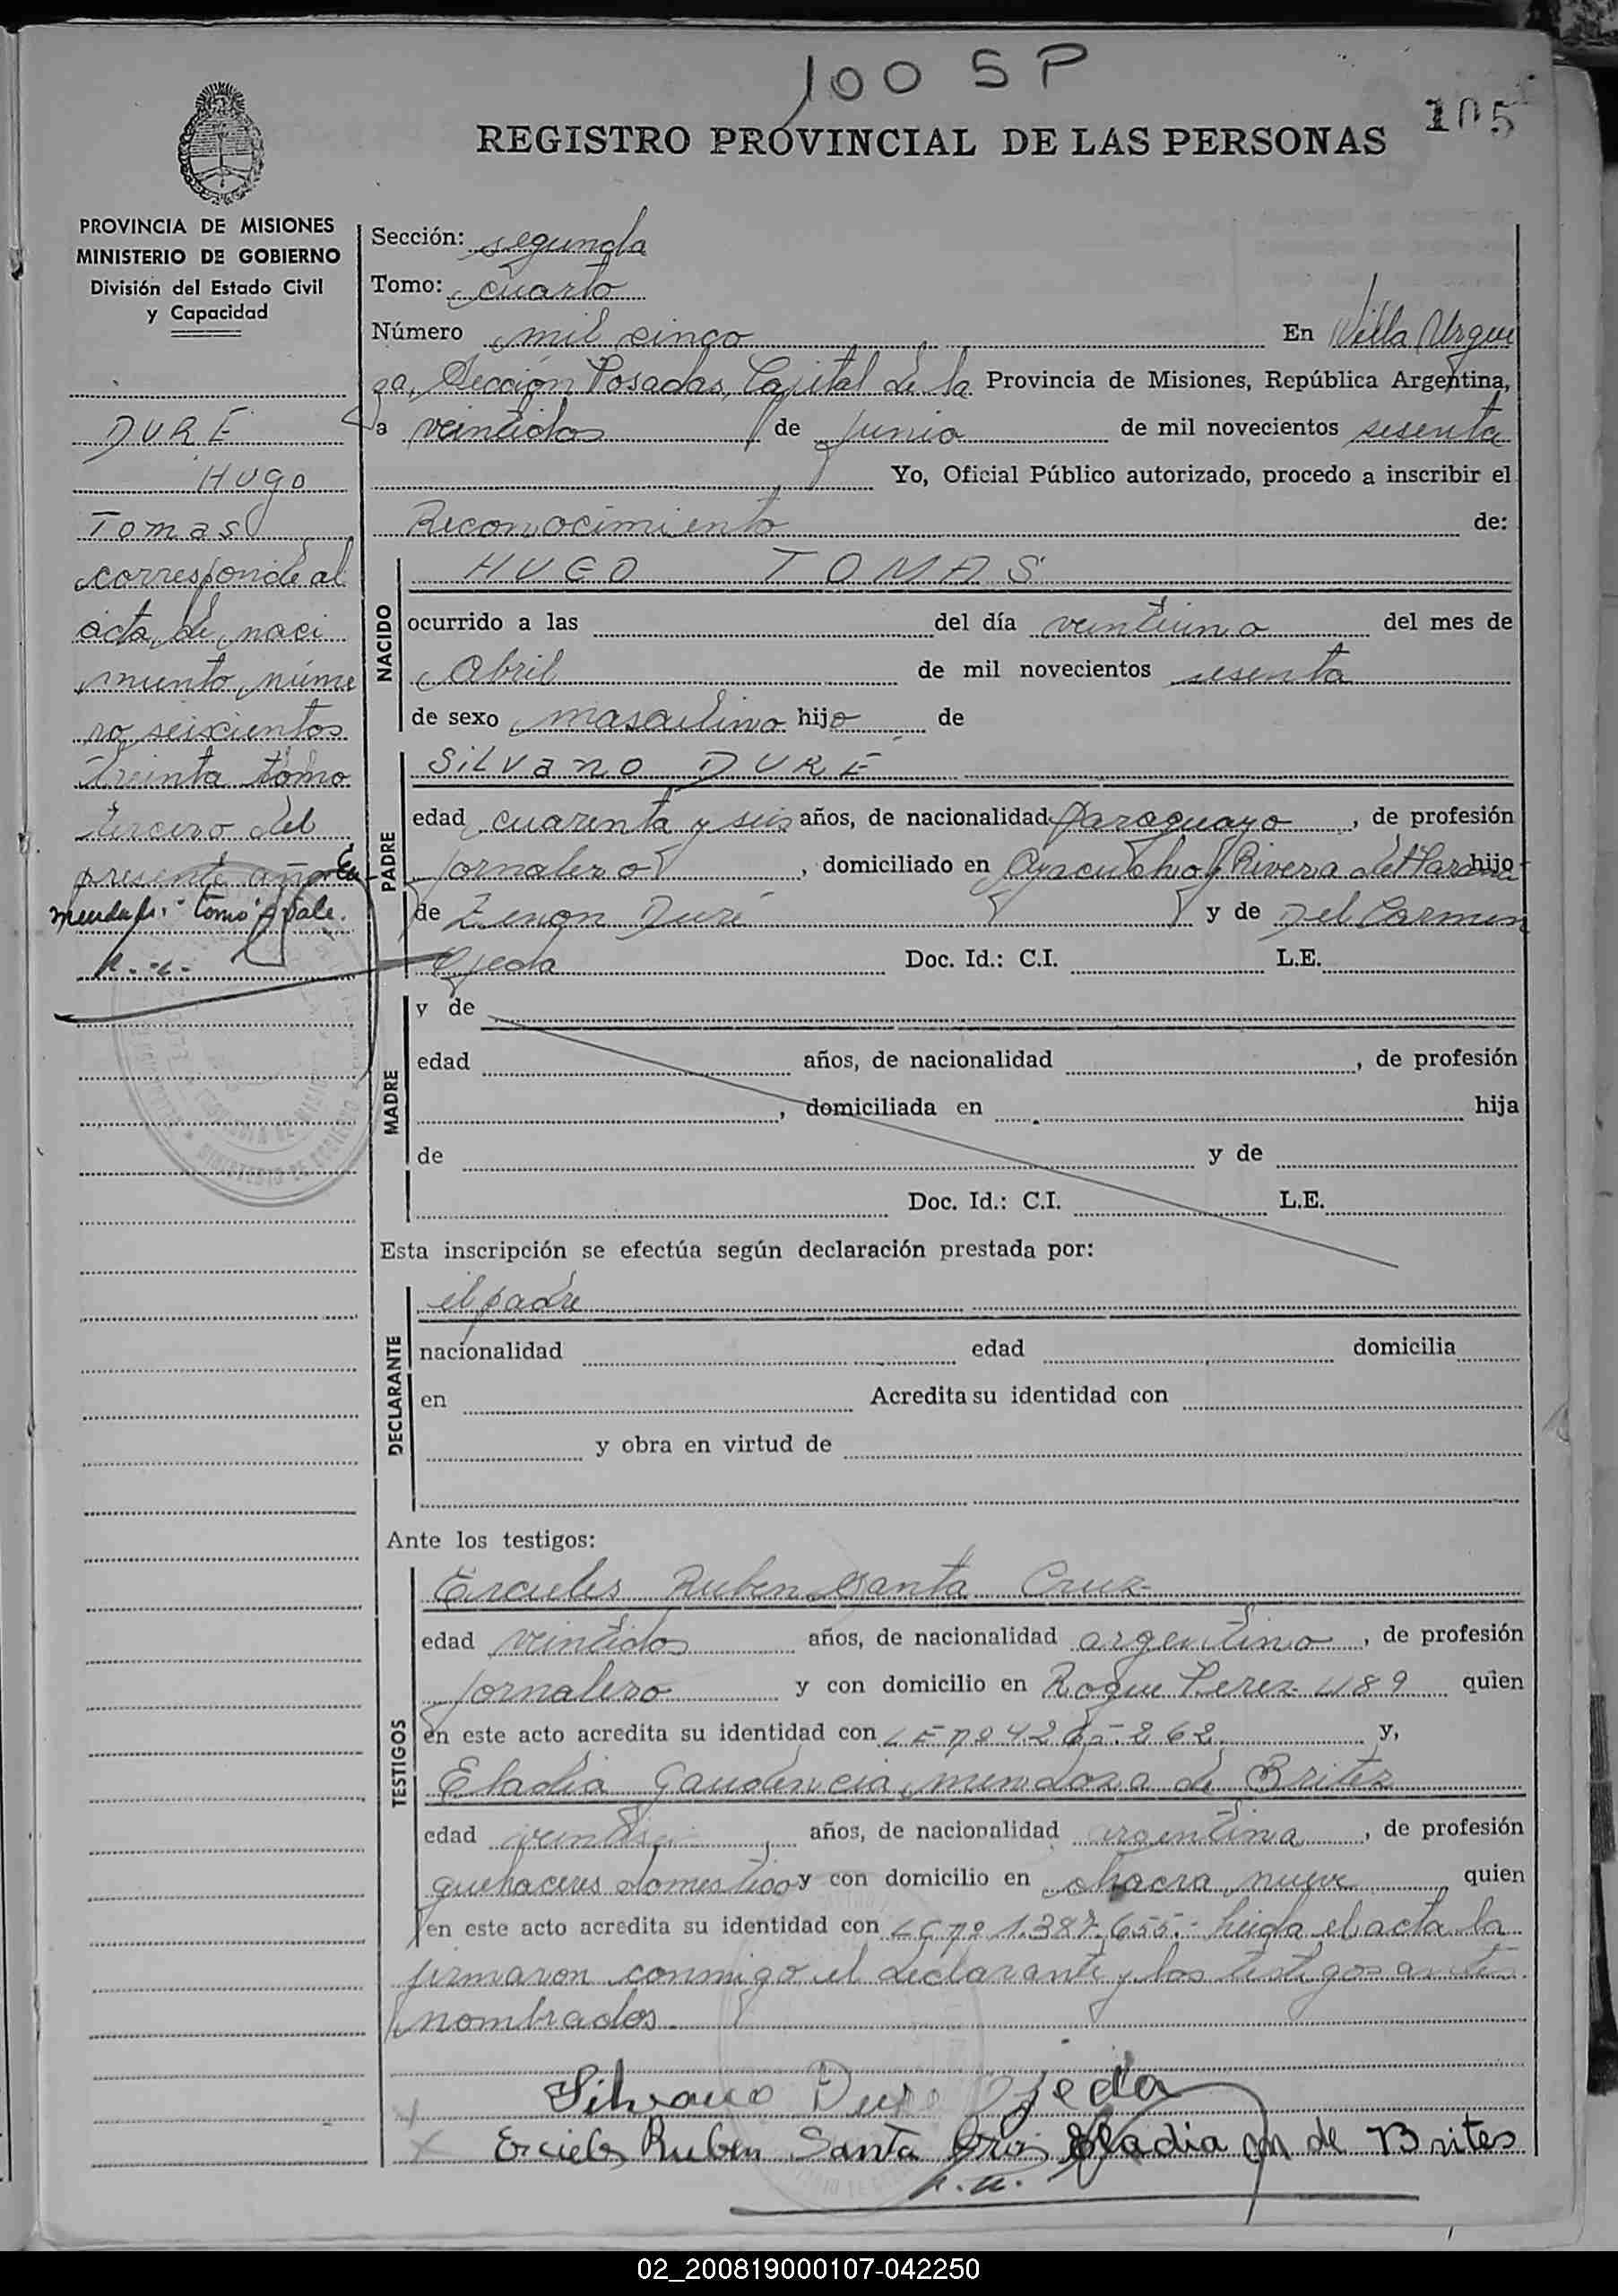 100 SP
105
REGISTRO PROVINCIAL DE LAS PERSONAS
PROVINCIA DE MISIONES
MINISTERIO DE GOBIERNO
División del Estado Civil
y Capacidad
DURÉ
HUGO
Tomas
corresponde al
acta de naci
miento núme
ro seiscientos
treinta tomo
tercero del
presente año En
mendado: "tomo" Vale.
Sección: segunda
Tomo: cuarto
Número mil cinco En Villa Urqui
za, Sección Posadas, Capital de la Provincia de Misiones, República Argentina,
a veintidos de junio de mil novecientos sesenta
Yo, Oficial Público autorizado, procedo a inscribir el
Reconocimiento de:
NACIDO
HUGO TOMAS
ocurrido a las del día veintiuno del mes de
Abril de mil novecientos sesenta
de sexo masculino hijo de
PADRE
SiLVano DURÉ
edad cuarenta y seis años, de nacionalidad Paraguayo, de profesión
jornalero, domiciliado en Ayacucho y Rivera del Parana hijo
de Zenon Duré y de Del Carmen
Ojeda Doc. Id.: C.I. L.E.
MADRE
y de
edad años, de nacionalidad , de profesión
, domiciliada en hija
de y de
Doc. Id.: C.I. L.E.
Esta inscripción se efectúa según declaración prestada por:
DECLARANTE
el padre
nacionalidad edad domicilia
en Acredita su identidad con
y obra en virtud de
Ante los testigos:
TESTIGOS
Ercieles Ruben Santa Cruz
edad veintidos años, de nacionalidad argentino, de profesión
jornalero y con domicilio en Roque Perez 489 quien
en este acto acredita su identidad con y,
Eladia Gaudencia mendoza de Britez
edad años, de nacionalidad argentina, de profesión
quehaceres domesticos y con domicilio en chacra nueve quien
en este acto acredita su identidad con LC nº 1.387.655.- Leida el acta la
firmaron conmigo el declarante y los testigos antes
nombrados.
Silvano Dure Ojeda
Ercieles Ruben Santa Cruz Eladia M de Brites
02_200819000107-042250